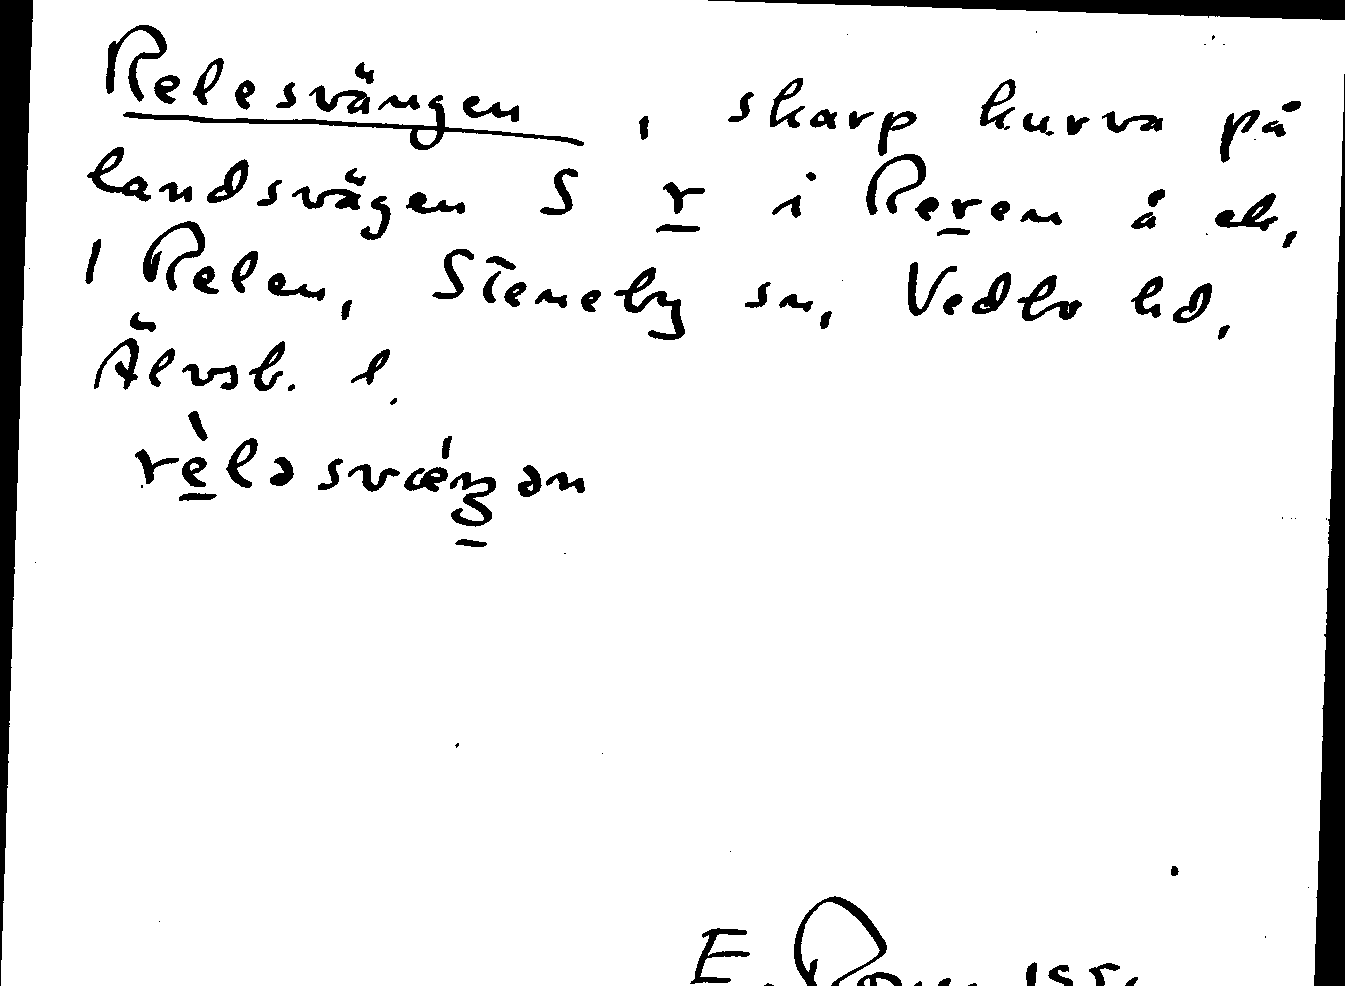 Relesvängen, skarp kurva på
landsvägen S r i Reren å ek,
1 Relen, Steneby sn, Vedbo hd,
Älvsb. l.
rèləsvǽŋən
E.